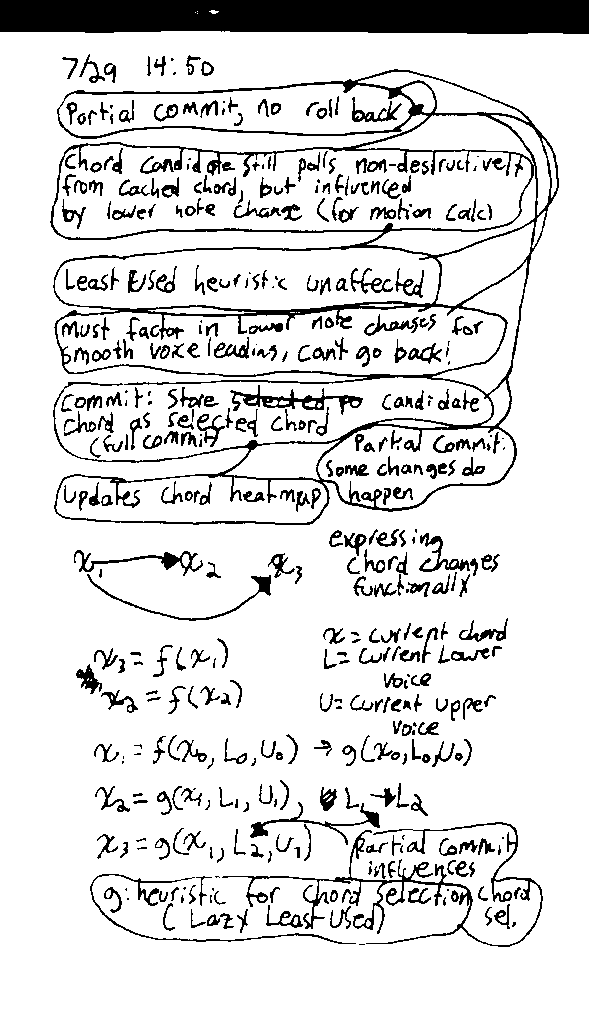 7/29 14:50
Partial commit, no roll back
Chord candidate still polls non-destructively
from cached chord, but influenced
by lower note change (for motion calc)
Least Used heuristic unaffected
Must factor in Lower note changes for
smooth voice leading, can't go back!
Commit: Store selected po candidate
chord as selected chord
(full commit)
Partial Commit:
some changes do
happen
Updates chord heatmap
x₁ → x₂ x₃
expressing
chord changes
functionally
x = current chord
L = current Lower
voice
U = current upper
voice
x₃ = f(x₁)
x₂ = f(x₂)
x₁ = f(x₀, L₀, U₀) → g(x₀, L₀, U₀)
x₂ = g(x₁, L₁, U₁), L₁ → L₂
x₃ = g(x₁, L₂, U₁)
partial commit
influences
chord
sel.
g: heuristic for chord selection
(Lazy Least-Used)